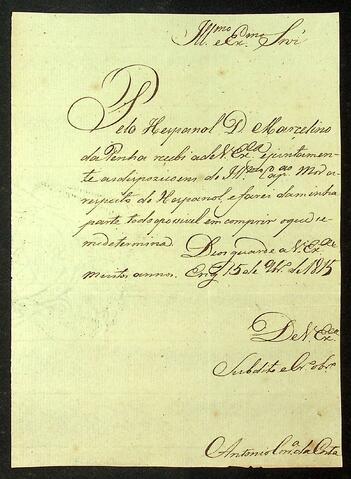 Ill.mo e Ex.mo Snr.
Pelo Hespanol D. Marcelino
da Penha recebi a de V. Ex.cia e juntamen-
te as dispozicoens do
respeito do Hespanol, e farei da minha
parte todo o possivel em comprir o que se
me determina. Deos guarde a V. Ex.cia
muitos annos. 15 de 9br.o de 1815
De V. Ex.cia
Subdito e Cr.o obr.o
Antonio Cor.a da Costa